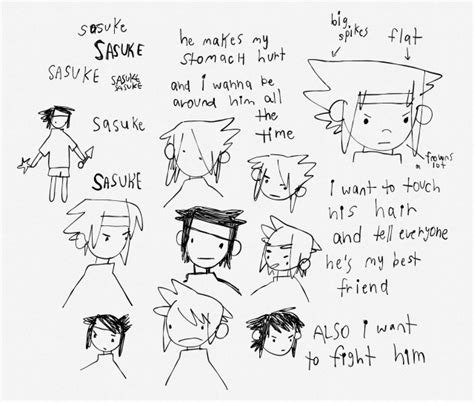 sasuke
SASUKE
SASUKE
SASUKE
SASUKE
sasuke
SASUKE
he makes my
stomach hurt
and i wanna be
around him all
the
time
big
spikes
flat
frowns
lot
i want to touch
his hair
and tell everyone
he's my best
friend
ALSO i want
to fight him